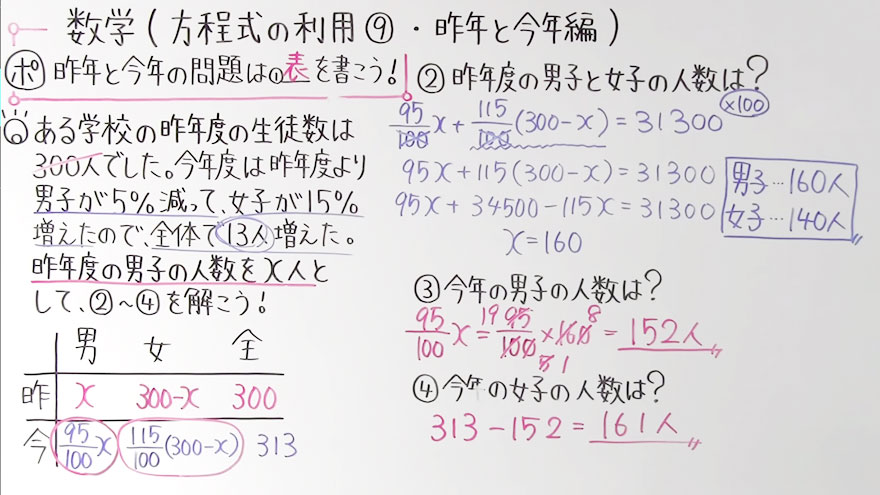 数学(方程式の利用⑨・昨年と今年編)
ポ 昨年と今年の問題は①表を書こう!
Q ある学校の昨年度の生徒数は
300人でした。今年度は昨年度より
男子が5%減って、女子が15%
増えたので、全体で13人増えた。
昨年度の男子の人数をx人と
して、②~④を解こう!
男 女 全
昨 x 300-x 300
今 95/100x 115/100(300-x) 313
②昨年度の男子と女子の人数は?
95/100x+115/100(300-x)=31300 ×100
95x+115(300-x)=31300
95x+34500-115x=31300
x=160
男子…160人
女子…140人
③今年の男子の人数は?
95/100x=95/100×160=152人
19 8
5 1
④今年の女子の人数は?
313-152=161人